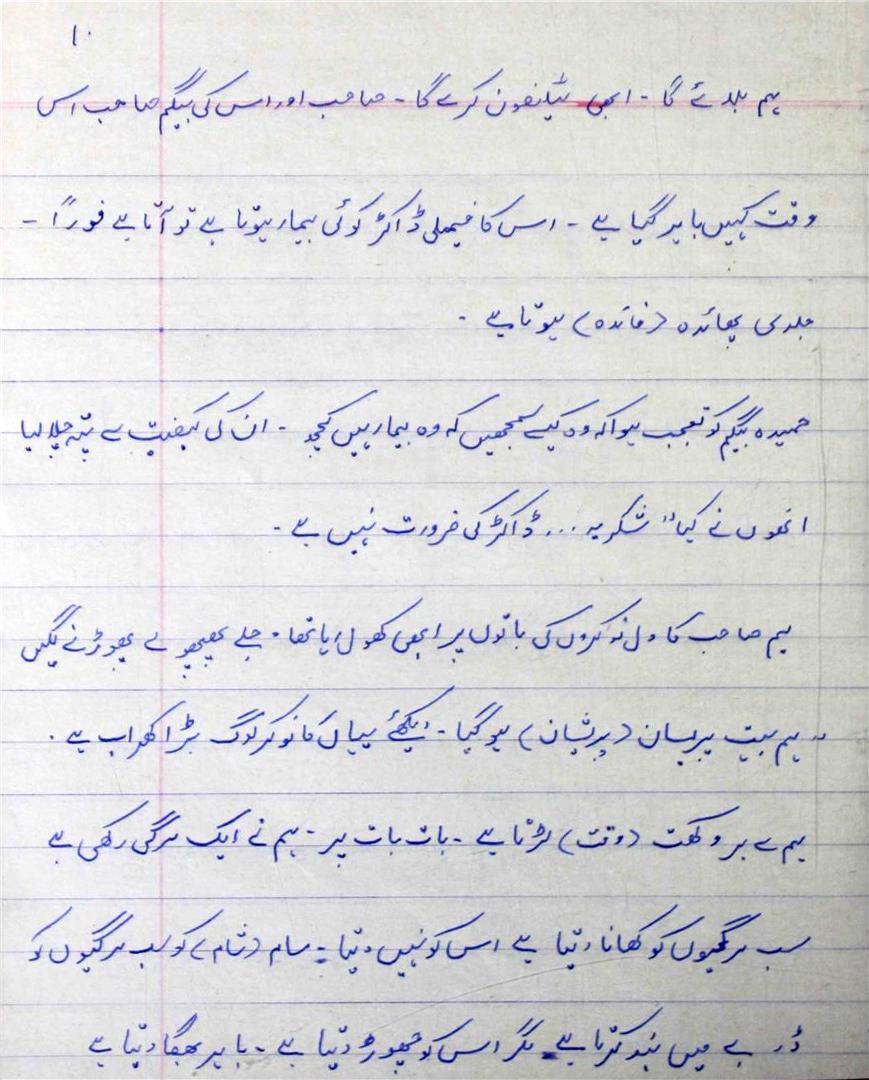 ۱۰
ہم بلائے گا - ابھی ٹیلیفون کرے گا - صاحب اور اس کی بیگم صاحب اس
وقت کہیں باہر گیا ہے - اس کا فیملی ڈاکٹر کوئی بیمار ہوتا ہے تو آتا ہے فوراً -
جلدی پھائدہ (فائدہ) ہوتا ہے -
حمیدہ بیگم کو تعجب ہوا کہ وہ کیسے سمجھیں کہ وہ بیمار ہیں کچھ - ان کی کیفیت سے پتہ چلا لیا
انھوں نے کہا " شکریہ ... ڈاکٹر کی ضرورت نہیں ہے -
ہم صاحب کا دل نوکروں کی باتوں پر ابھی کھول رہا تھا - جلے پھپھولے پھوڑنے لگیں
" ہم بہت پریسان (پریشان) ہو گیا - دیکھئے یہاں کا نوکر لوگ بڑا کھراب ہے -
ہم سے ہر وکھت (وقت) لڑتا ہے - بات بات پر - ہم نے ایک مرگی رکھی ہے
سب مرگیوں کو کھانا دیتا ہے اس کو نہیں دیتا - سام (شام) کو سب مرگیوں کو
ڈربے میں بند کرتا ہے مگر اس کو چھوڑ دیتا ہے - باہر بھگا دیتا ہے